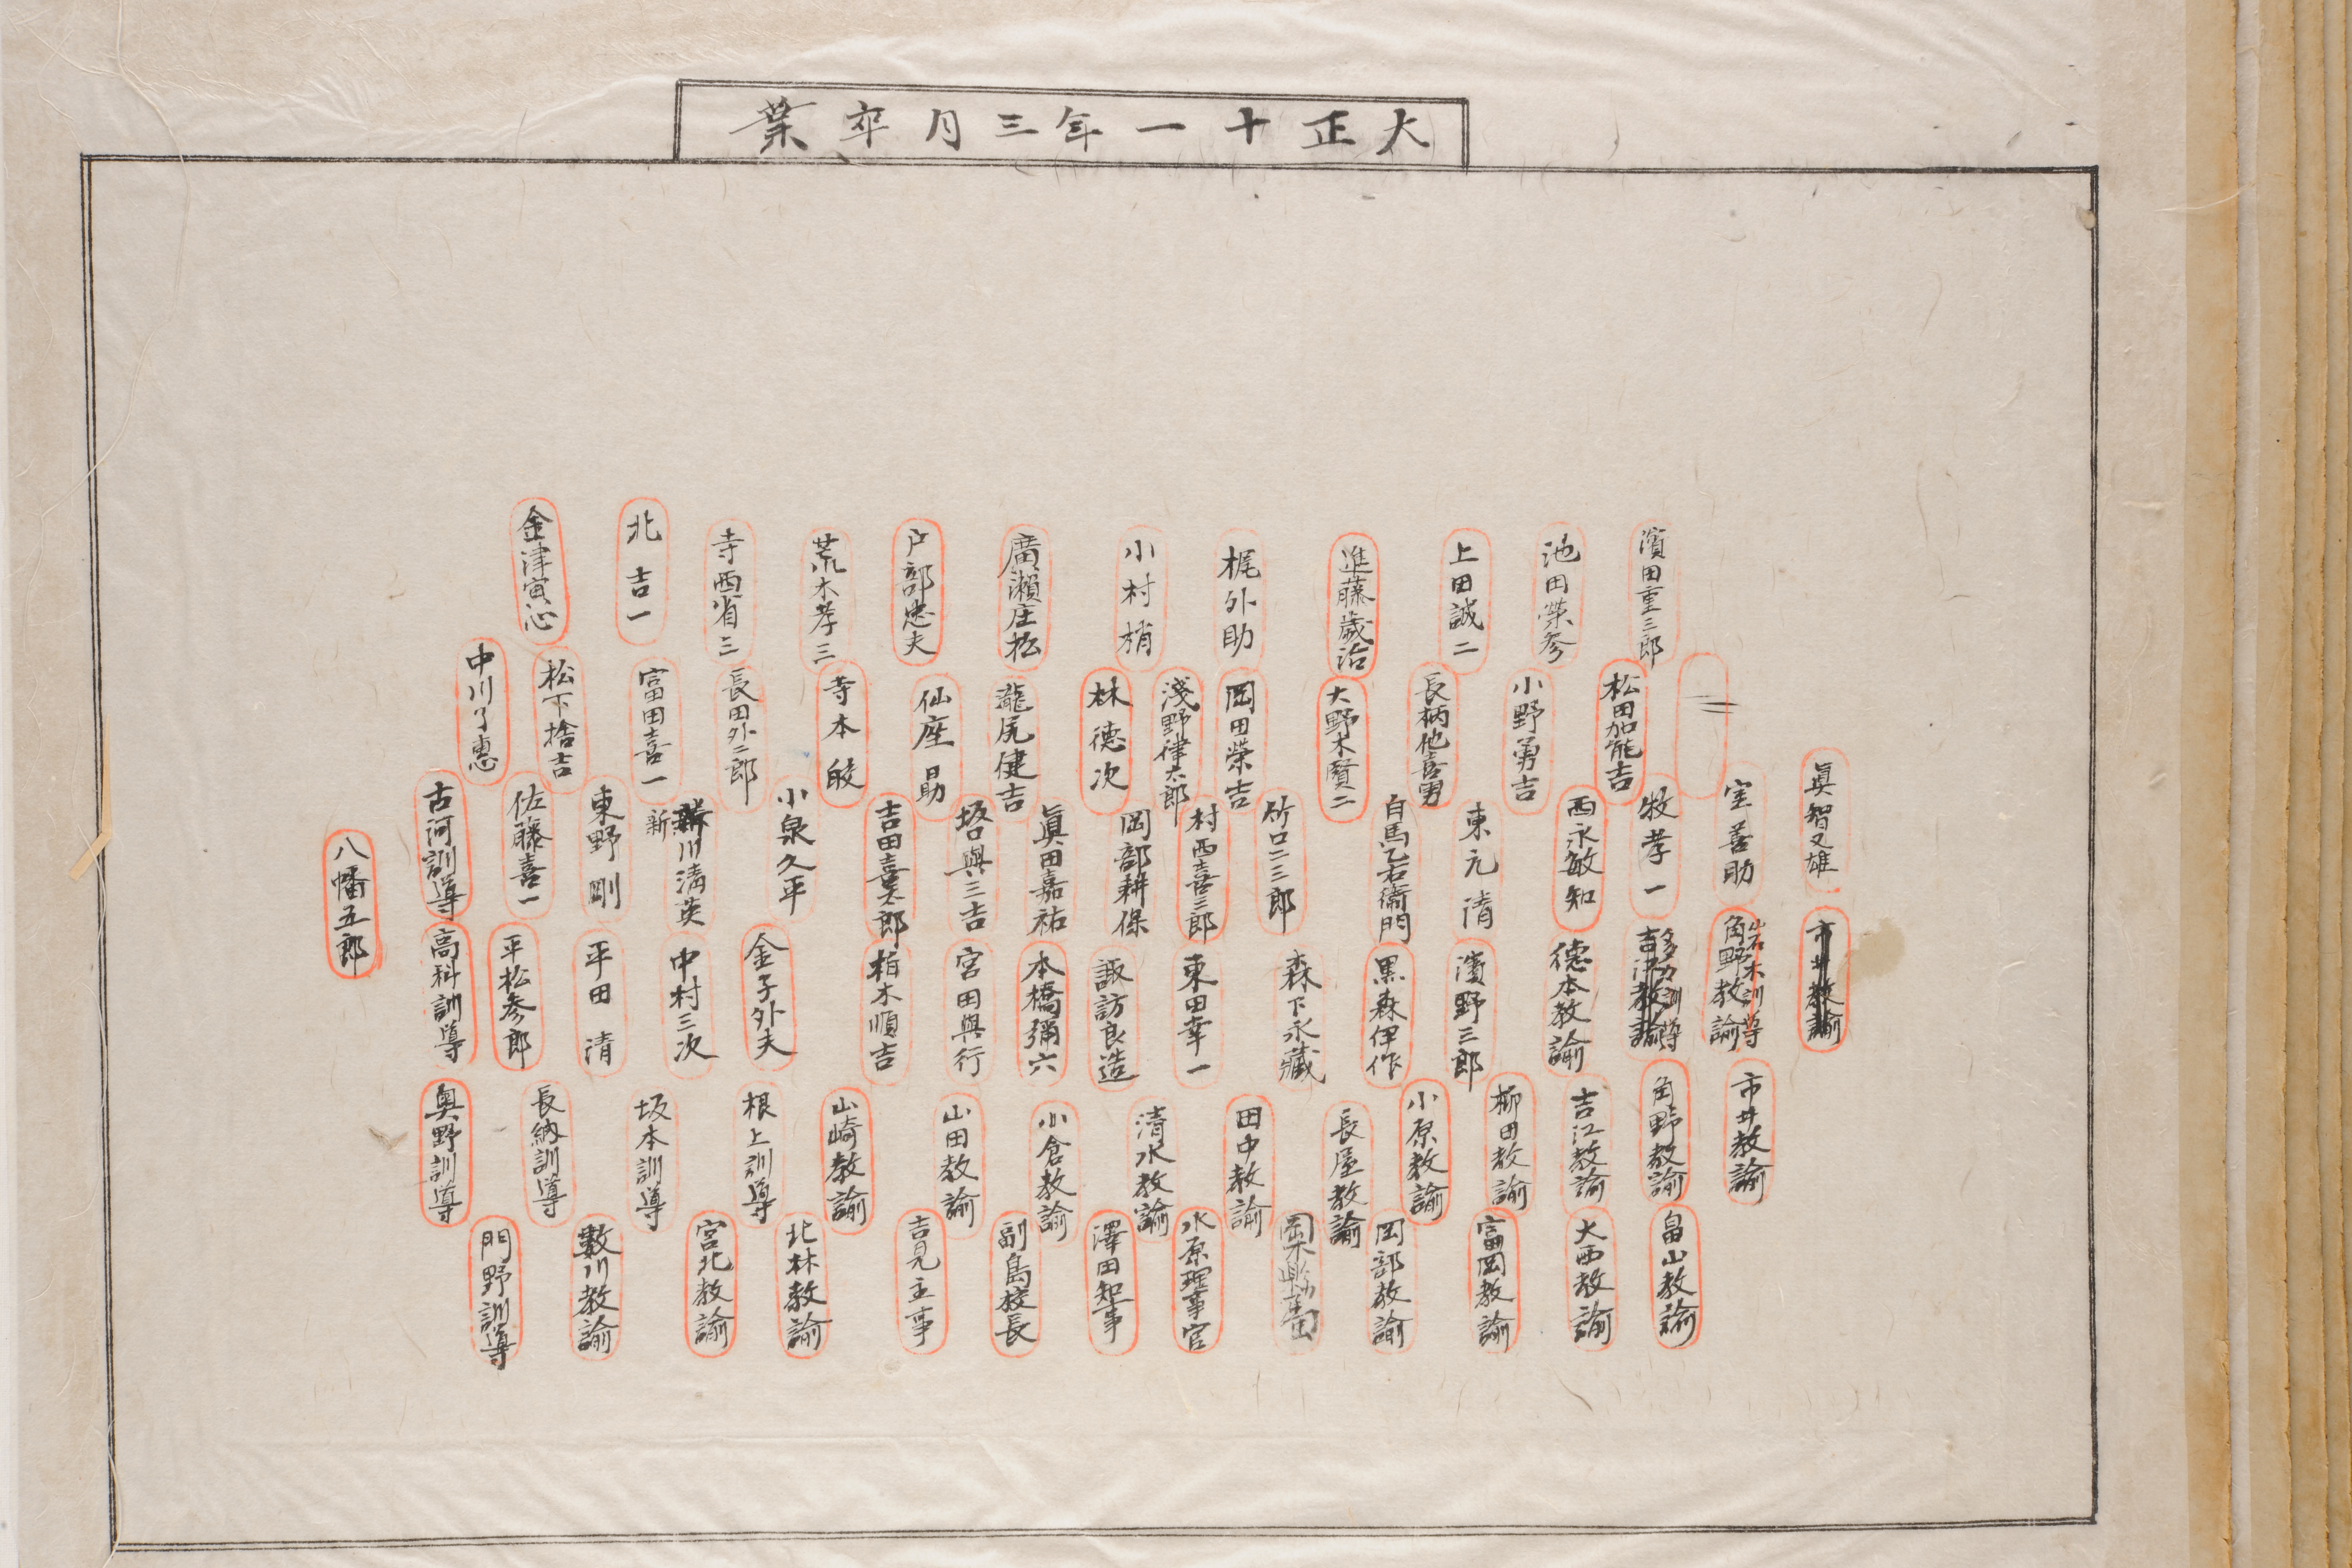 大正十一年三月卒業
濱田重三郎
池田榮参
上田誠二
進藤歳治
梶外助
小村梢
廣瀬庄松
戸部忠夫
荒木孝三
寺西省三
北吉一
金津寅心
松田加能吉
小野勇吉
長柄他喜男
大野木賢二
岡田榮吉
淺野律太郎
林徳次
瀧尻健吉
仙座勗
寺本皎
長田外二郎
富田喜一
松下捨吉
中川了惠
眞智又雄
室善助
牧孝一
西永敏知
東元清
白馬乙右衞門
竹口二三郎
村西喜三郎
岡部耕保
眞田嘉祐
坂口與三吉
吉田喜太郎
小泉久平
川清英
新
東野剛
佐藤喜一
古河訓導
八幡五郎
市井教諭
角野教諭
木訓導
教諭
訓導
徳本教諭
濱野三郎
黒森伊作
森下永藏
東田幸一
諏訪良造
本橋彌六
宮田與行
柏木順吉
金子外夫
中村三次
平田清
平松参郎
高科訓導
市井教諭
角野教諭
吉江教諭
柳田教諭
小原教諭
長屋教諭
田中教諭
清水教諭
小倉教諭
山田教諭
山崎教諭
根上訓導
坂本訓導
長納訓導
奥野訓導
畠山教諭
大西教諭
富岡教諭
岡部教諭
水原理事官
澤田知事
副島校長
吉見主事
北林教諭
宮北教諭
數川教諭
門野訓導